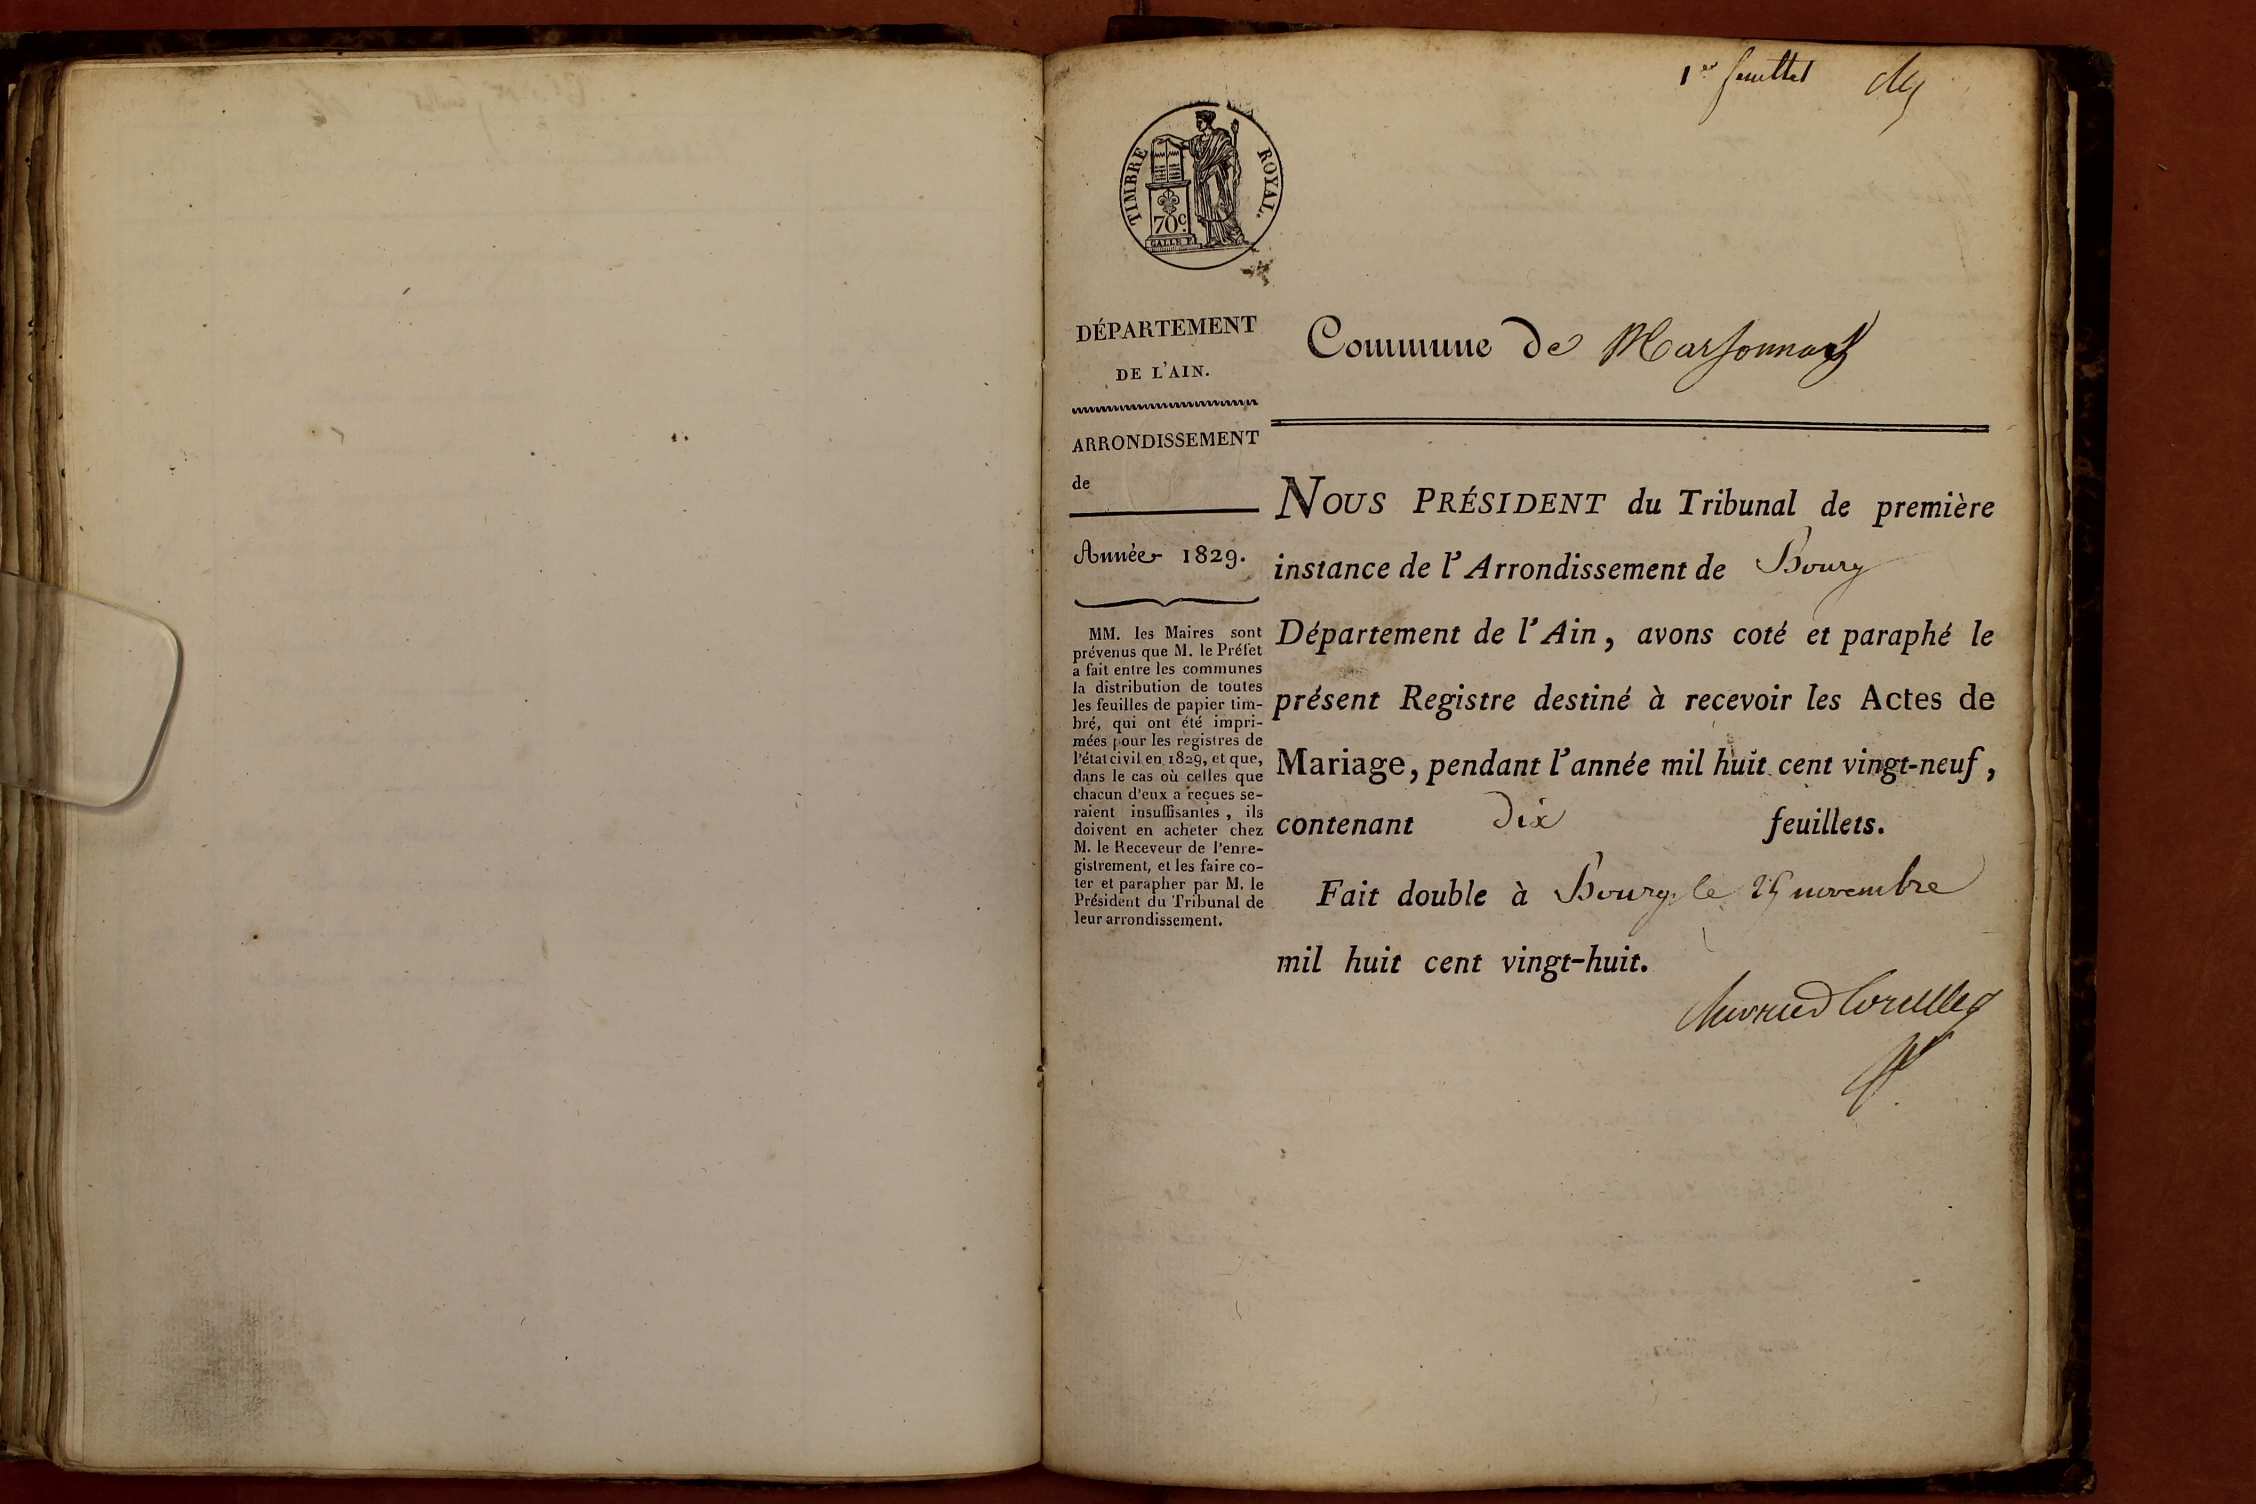 1er feuillet
TIMBRE ROYAL.
70c.
DÉPARTEMENT
DE L'AIN.
ARRONDISSEMENT
de
Année 1829.
MM. les Maires sont
prévenus que M. le Préfet
a fait entre les communes
la distribution de toutes
les feuilles de papier tim-
bré, qui ont été impri-
mées pour les registres de
l'état civil en 1829, et que,
dans le cas où celles que
chacun d'eux a reçues se-
raient insuffisantes, ils
doivent en acheter chez
M. le Receveur de l'enre-
gistrement, et les faire co-
ter et parapher par M. le
Président du Tribunal de
leur arrondissement.
Commune de Marsonnas
NOUS PRÉSIDENT du Tribunal de première
instance de l'Arrondissement de Bourg
Département de l'Ain, avons coté et paraphé le
présent Registre destiné à recevoir les Actes de
Mariage, pendant l'année mil huit cent vingt-neuf,
contenant dix feuillets.
Fait double à Bourg, le 25 novembre
mil huit cent vingt-huit.